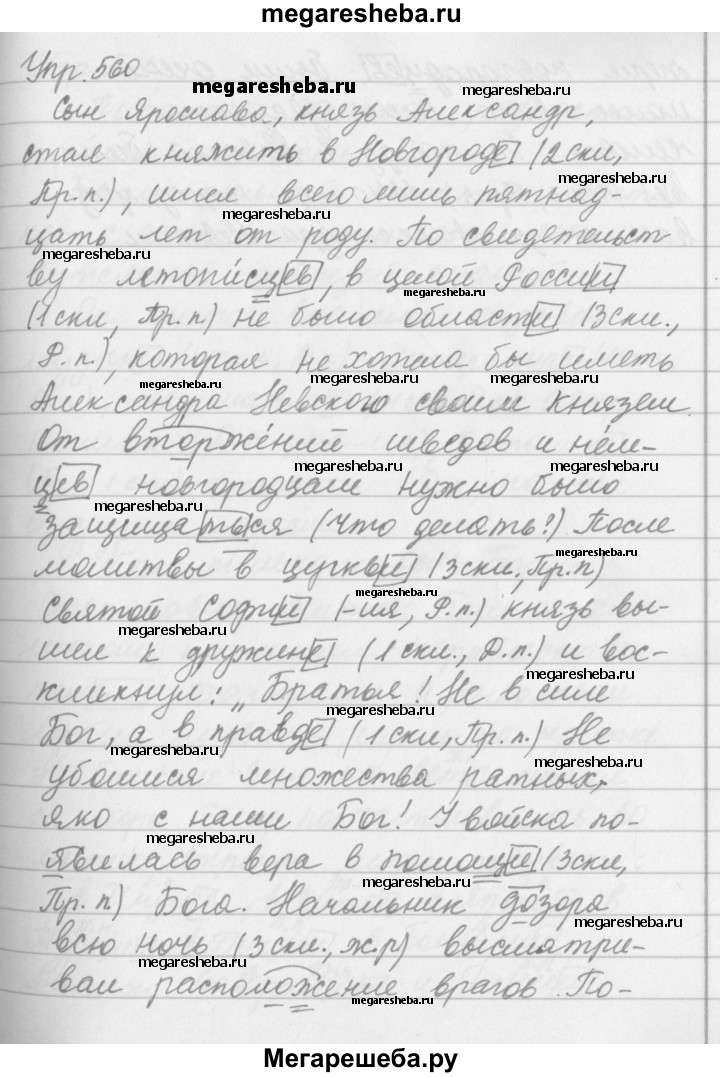 megaresheba.ru
Упр. 560
megaresheba.ru
Сын Ярослава, князь Александр,
стал княжить в Новгороде (2 скл,
megaresheba.ru
Пр. п.), имел всего лишь пятнад-
megaresheba.ru
цать лет от роду. По свидетельст
megaresheba.ru
ву летописцев, в целой России
megaresheba.ru megaresheba.ru
(1 скл, Пр. п) не было области (3 скл.,
Р. п.), которая не хотела бы иметь
megaresheba.ru megaresheba.ru megaresheba.ru
Александра Невского своим князем.
От вторжений шведов и нем-
megaresheba.ru megaresheba.ru
цев новгородцам нужно было
megaresheba.ru
защищаться (что делать?) После
megaresheba.ru
молитвы в цуркви (3 скл, Пр. п)
Святой Софии (-ия, Р. п.) князь вы-
megaresheba.ru
шел к дружине (1 скл., Д. п.) и вос-
megaresheba.ru
кликнул: „Братья! Не в силе
megaresheba.ru
Бог, а в правде (1 скл, Пр. п.) Не
megaresheba.ru megaresheba.ru
убоимся множества ратных,
яко с нами Бог! У войска по-
megaresheba.ru
явилась вера в помощи (3 скл,
megaresheba.ru
Пр. п) Бога. Начальник дозора
megaresheba.ru
всю ночь (3 скл., ж.р) высматри-
megaresheba.ru
вал расположение врагов. По-
megaresheba.ru
Мегарешеба.ру